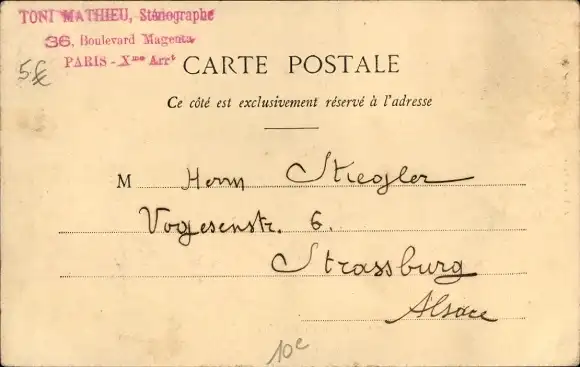 TONI MATHIEU, Sténographe
36, Boulevard Magenta
PARIS - Xme Arrt
5€
CARTE POSTALE
Ce côté est exclusivement réservé à l'adresse
M Herrn Stiegler
Vogesenstr. 6.
Strassburg
Alsace
10e